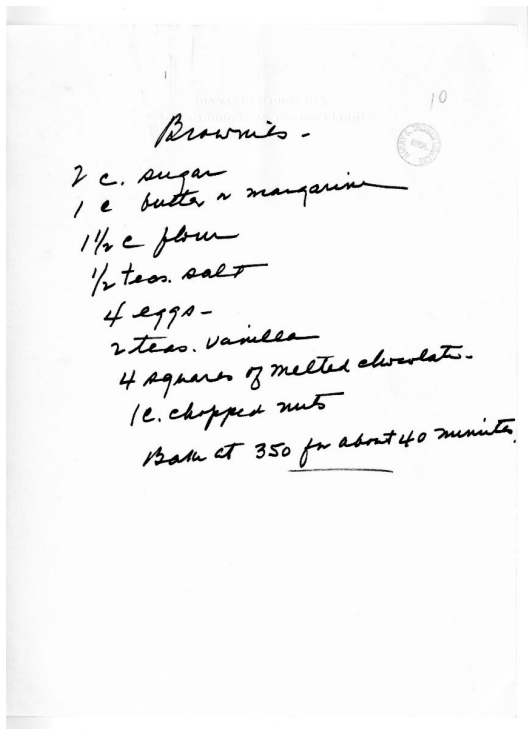 10
Brownies -
2 c. sugar
1 c butter or margarine
1 1/2 c flour
1/2 teas. salt
4 eggs -
2 teas. vanilla
4 squares of melted chocolate -
1 c. chopped nuts
Bake at 350 for about 40 minutes.